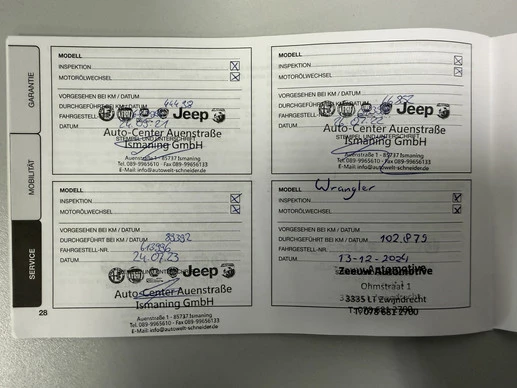 GARANTIE
MOBILITÄT
SERVICE
MODELL
INSPEKTION
MOTORÖLWECHSEL
VORGESEHEN BEI KM / DATUM
DURCHGEFÜHRT BEI KM / DATUM
FAHRGESTELL-NR.
DATUM
Jeep
Auto-Center Auenstraße
STEMPEL UND UNTERSCHRIFT
Ismaning GmbH
Auenstraße 1 - 85737 Ismaning
Tel. 089-9965610 - Fax 089-99656133
E-Mail: info@autowelt-schneider.de
MODELL
INSPEKTION
MOTORÖLWECHSEL
VORGESEHEN BEI KM / DATUM
DURCHGEFÜHRT BEI KM / DATUM
FAHRGESTELL-NR.
DATUM
Jeep
Auto-Center Auenstraße
STEMPEL UND UNTERSCHRIFT
Ismaning GmbH
Auenstraße 1 - 85737 Ismaning
Tel. 089-9965610 - Fax 089-99656133
E-Mail: info@autowelt-schneider.de
MODELL
INSPEKTION
MOTORÖLWECHSEL
VORGESEHEN BEI KM / DATUM
DURCHGEFÜHRT BEI KM / DATUM
FAHRGESTELL-NR.
DATUM 24.07.23
Jeep
Auto-Center Auenstraße
Ismaning GmbH
Auenstraße 1 - 85737 Ismaning
Tel. 089-9965610 - Fax 089-99656133
E-Mail: info@autowelt-schneider.de
MODELL Wrangler
INSPEKTION
MOTORÖLWECHSEL
VORGESEHEN BEI KM / DATUM
DURCHGEFÜHRT BEI KM / DATUM 102.875
FAHRGESTELL-NR.
DATUM 13-12-2024
Zeeuw Automotive
Ohmstraat 1
3335 LT Zwijndrecht
28